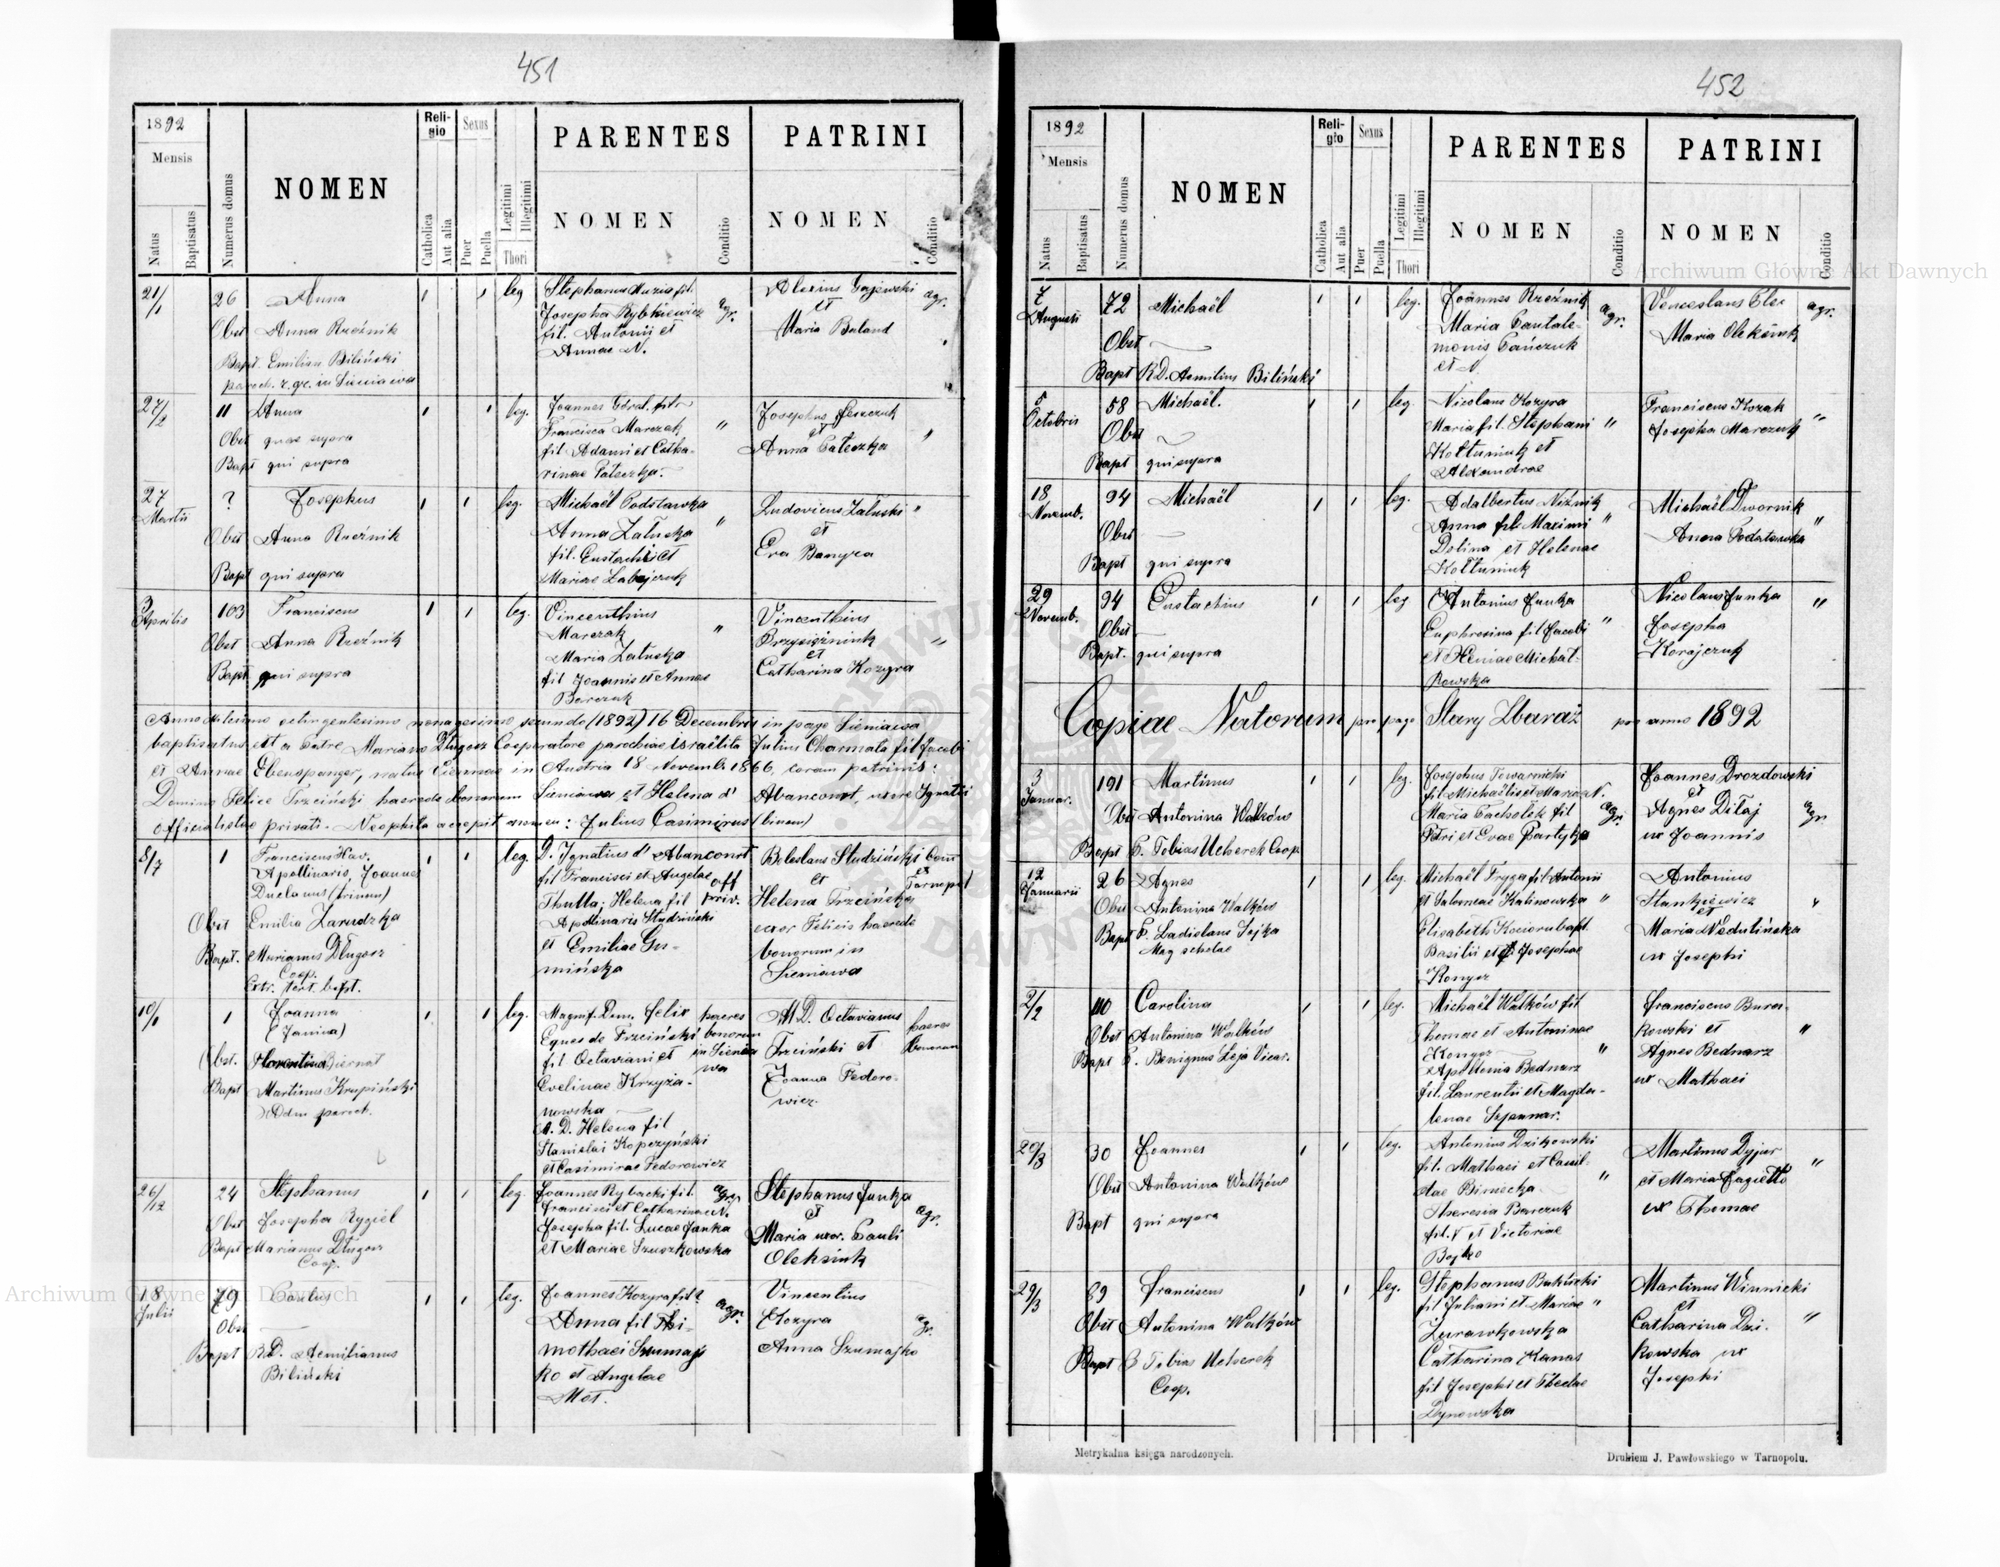 451
1892
Mensis
Natus
Baptisatus
Numerus domus
NOMEN
Religio
Catholica
Aut alia
Sexus
Puer
Puella
Legitimi
Illegitimi
Thori
PARENTES
NOMEN
Conditio
PATRINI
NOMEN
Conditio
21/1 26 Anna leg Stephanus fil. Alexius Gajewski agr.
Josepha Rybkiewicz agr. et
Obst Anna Rzeźnik fil. Antonii et Maria Baland
Annae N.
Bapt. Emilian Biliński
paroch. r. gr. in Sieniawa
27/2 11 Anna leg. Joannes fil. Josephus
Obst quae supra Francisca Marczak " et
Bapt qui supra fil. Adami et Catha- Anna Pateczka "
rinae Pateczka.
27 Martii ? Josephus leg. Michaël Podstawka Ludovicus Załuski "
Anna Załuska " et
Obst Anna Rzeźnik fil. Eustachii et Eva
Bapt qui supra Mariae
3 Aprilis 103 Franciscus leg. Vincenthius Vincenthius
Obst Anna Rzeźnik Marczak "
Maria Załuska et
Bapt qui supra fil Joannis et Annae Catharina Kozyra
Barczuk
Anno millesimo octingentesimo nonagesimo secundo (1892) 16 Decembris in pago Sieniawa
baptisatus est a Patre Mariano Długosz Cooperatore parochiae israëlita Julius Charmatz fil Jacobi
et Annae Ebenspanger, natus Viennae in Austria 18 Novemb. 1866, coram patrinis:
Domino Felice Trzciński haerede bonorum Sieniawa et Helena d' Abancourt, uxore Ignatii
officialistae privati. Neophita accepit nomen: Julius Casimirus (binom)
8/7 1 Franciscus Xav. leg. D. Ignatius d' Abancourt Boleslaus Studziński
Apollinaris, Joannes fil Francisci et Angelae off priv. et
Duclanus (trinum) Thulla; Helena fil Helena Trzcińska
Obst Emilia Zarudzka Apollinaris Studziński uxor Felicis haeredis
Bapt. Marianus Długosz et Emiliae Gu- bonorum in
Coop. mińska Sieniawa
10/1 1 Joanna leg. Magnif. Dom. Felix haeres M. D. Octavianus haeres
(Janina) Eques de Trzciński bonorum Trzciński et bonorum
Obst. Florentina Biernat fil Octaviani et in Sienia Joanna Fedoro-
Bapt Martinus Krupiński Evelinae Krzyża- wa wicz.
Adm paroch. nowska
M. D. Helena fil
Stanislai Kopczyński
et Casimirae Fedorowicz
26/12 24 Stephanus leg. Joannes Rybacki fil. agr. Stephanus Junka agr.
Obst Josepha Rygiel Francisci et Catharinae N. et
Josepha fil. Lucae Janka Maria uxor. Pauli
Bapt Marianus Długosz et Mariae Szuszkowska Oleksiuk
Coop.
18 Julii 79 Paulus leg. Joannes Kozyra fil. agr. Vincentius agr.
Obst Anna fil Thi- Kozyra
mothaei Szumaj- Anna Szumajko
Bapt R.D. Aemilianus ko et Angelae
Biliński
452
1892
Mensis
Natus
Baptisatus
Numerus domus
NOMEN
Religio
Catholica
Aut alia
Sexus
Puer
Puella
Legitimi
Illegitimi
Thori
PARENTES
NOMEN
Conditio
PATRINI
NOMEN
Conditio
7 Augusti 72 Michaël leg. Joannes Rzeźnik agr. Venceslaus agr.
Obst Maria Pantale- Maria Oleksiuk
monis Pańczuk
Bapt R.D. Aemilius Biliński et N.
5 Octobris 58 Michaël. leg. Nicolaus Kozyra Franciscus Kozak "
Obst Maria fil. Stephani " Josepha Marczuk
Bapt qui supra Kołtuniuk et
Alexandrae
18 Novemb. 94 Michaël leg. Adalbertus Niźnik Michaël Dwornik
Obst Anna fil Maximi " Anna Podstawka "
Dolina et Helenae
Bapt qui supra Kołtuniuk
29 Novemb. 94 Eustachius leg. Antonius Junka Nicolaus Junka "
Obst Euphrosina fil Jacobi " Josepha
Bapt. qui supra et Xeniae Michał- Korajczuk
kowska
Copiae Natorum pro pago Stary Zbaraż pro anno 1892
3 Januar. 191 Martinus leg. Josephus Towarnicki Joannes Drozdowski
fil Michaëlis et Mariae N. et
Obst Antonina Walków Maria Pacholek fil agr. Agnes Diłaj agr.
Bapt P. Tobias Ucherek Coop Petri et Evae Partyka ux Joannis
12 Januarii 26 Agnes leg. Michaël Fryga fil Antonii Antonius
Obst Antonina Walków et Salomeae Kalinowska " Stankiewicz "
et
Bapt P. Ladislaus Sejka Elisabeth Maria Nedulińska
Mag scholae Basilii et Josephae ux Josephi
Konyer
2/2 110 Carolina leg. Michaël Walków fil Franciscus Bura-
Obst Antonina Walków Thomae et Antoninae kowski et "
Konyer " Agnes Bednarz
Bapt P. Benignus Leja Vicar. Apollonia Bednarz ux Mathaei
fil. Laurentii et Magda-
lenae
20/3 30 Joannes leg. Antonius Dzikowski Martinus Dyjur "
Obst Antonina Walków fil. Mathaei et Camil- et Maria Jagiełło
lae " ux Thomae
Bapt qui supra Theresia Barczuk
fil. V et Victoriae
Bojko
29/3 89 Franciscus leg. Stephanus Martinus Winnicki
Obst Antonina Walków fil Juliani et Mariae " et
Żurawkowska Catharina Dzi- "
Bapt P Tobias Ucherek Catharina Kanas kowska ux
Coop. fil Josephi et Theclae Josephi
Dynowska
Metrykalna księga narodzonych.
Drukiem J. Pawłowskiego w Tarnopolu.
Archiwum Główne Akt Dawnych
Archiwum Główne Akt Dawnych